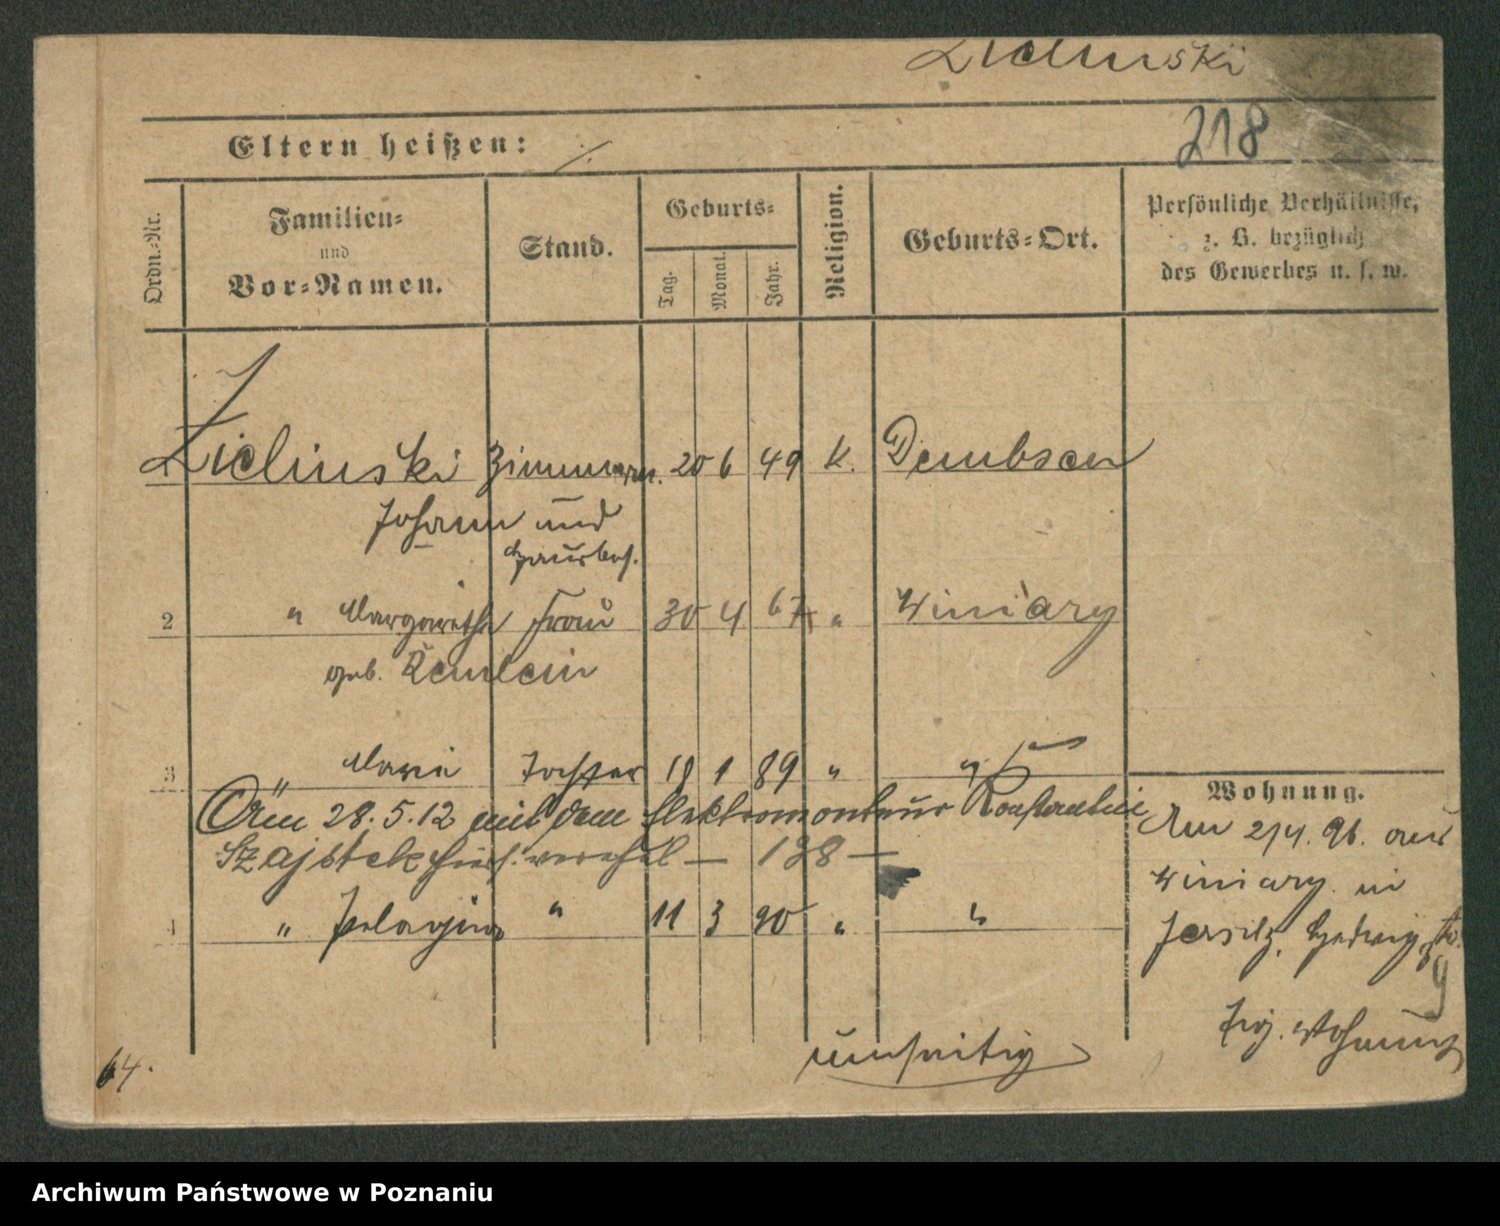 Zielinski
218
Eltern heißen: ./.
Ordn.-Nr.
Familien- und Vor-Namen.
Stand.
Geburts-
Tag. Monat. Jahr.
Religion.
Geburts-Ort.
Persönliche Verhältnisse, z. B. bezüglich des Gewerbes u. s. w.
Zielinski Zimmerm. 20 6 49 K. Dembsen
Johann und
Hausbes.
2 " Margarethe Frau 30 4 67 " Winiary
geb. Remlein
3 Marie Tochter 18 1 89 " "
Am 28.5.12 mit dem Elektromonteur Konstantin
Szajstek hies. verehel — 138 —
4 " Pelagia " 11 3 90 " "
Wohnung.
Am 2/4. 96. aus
Winiary in
Jersitz, Hedwigstr.
9
Wohnung
umseitig
64.
Archiwum Państwowe w Poznaniu